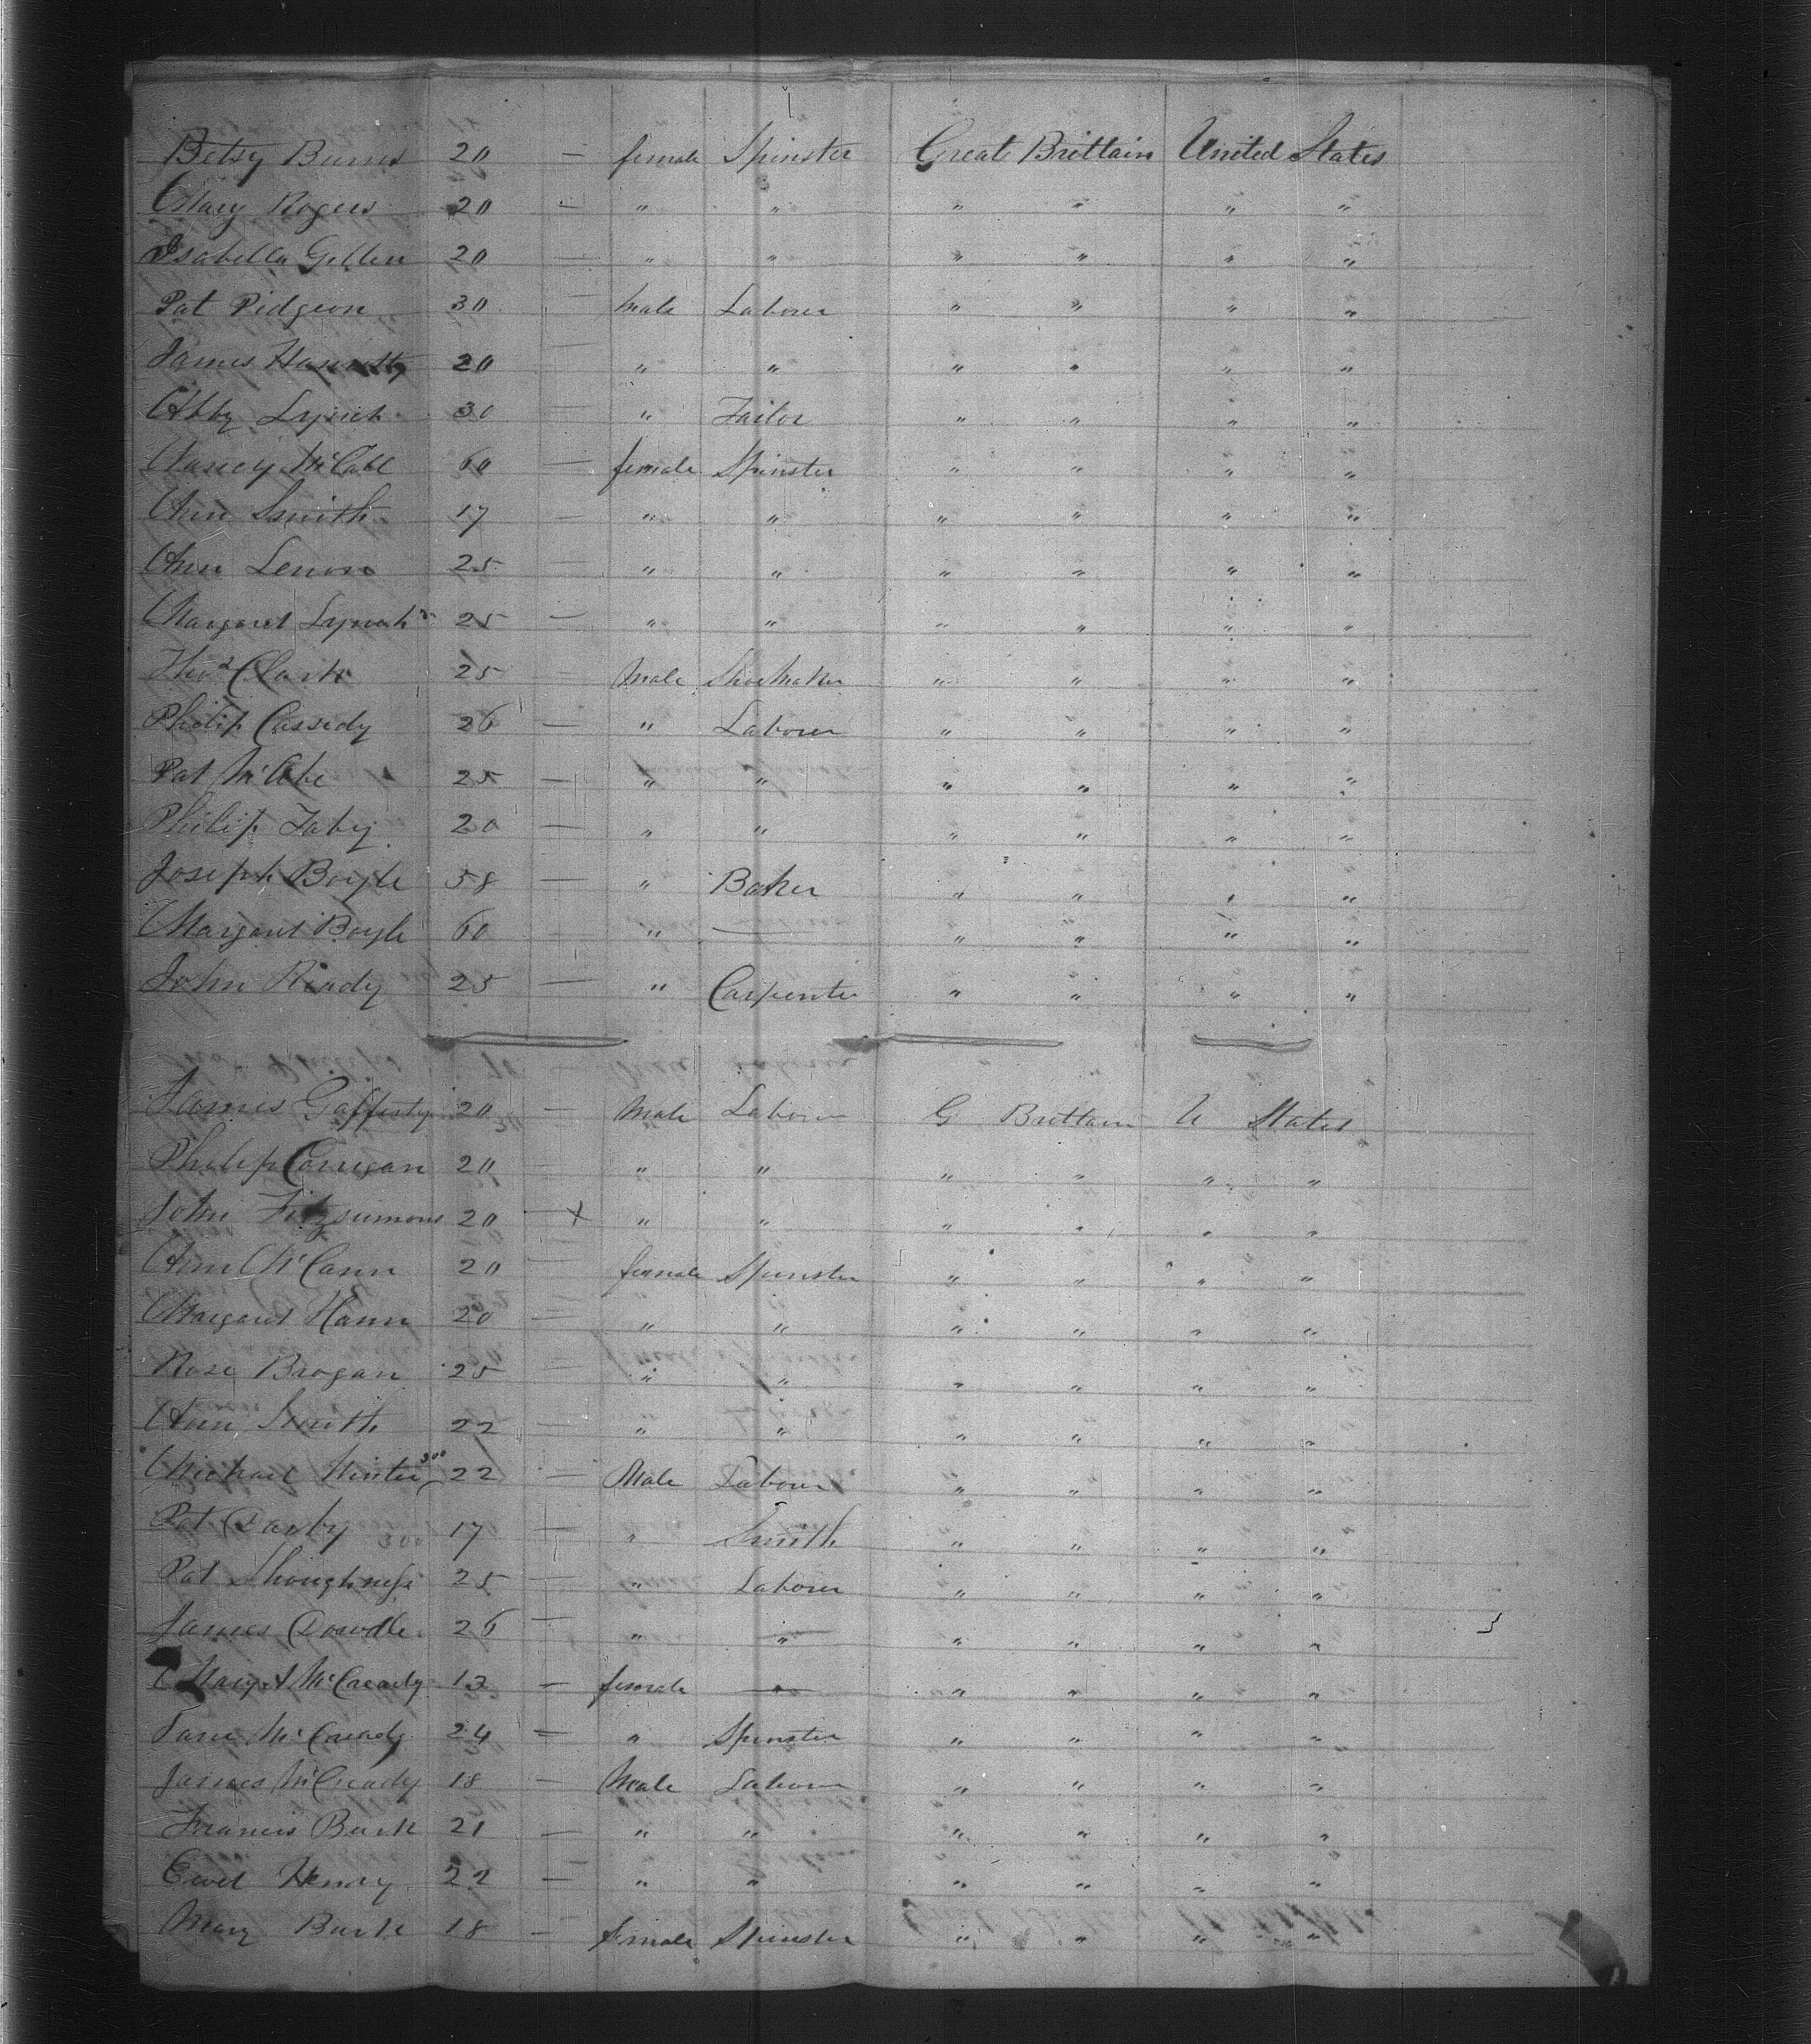 Betsy Burns 20 — female Spinster Great Brittain United States
Mary Rogers 20 — " " " " " "
Isabella Gellen 20 — " " " " " "
Pat Pidgeon 30 — Male Laborer " " " "
James 20 — " " " " " "
Abby Lynch 30 — " Tailor " " " "
Nancy McCabe 60 — female Spinster " " " "
Ann Smith 17 — " " " " " "
Ann Lenon 25 — " " " " " "
Margaret Lynch 25 — " " " " " "
Thos Clark 25 — Male Shoe Maker " " " "
Philip Cassedy 26 — " Laborer " " " "
Pat McCabe 25 — " " " " " "
Philip Fahy 20 — " " " " " "
Joseph Boyle 58 — " Baker " " " "
Margaret Boyle 60 — " — " " " "
John Ready 25 — " Carpenter " " " "
James Gafferty 20 — Male Laborer G Brittain U States
Philip Corrigan 20 — " " " " " "
John Fitzsimons 20 — X " " " " " "
Ann McCann 20 — female Spinster " " " "
Margaret Hann 20 — " " " " " "
Rose Brogan 25 — " " " " " "
Ann Smith 22 — " " " " " "
Michael Winter 300 22 — Male Laborer " " " "
Pat Darby 17 — " Smith " " " "
Pat Shoughness 25 — " Laborer " " " "
James Dowdle 26 — " " " " " "
Mary A McCready 13 — female — " " " "
Jane McCready 24 — " Spinster " " " "
James McCready 18 — Male Laborer " " " "
Francis Burk 21 — " " " " " "
Henry 22 — " " " " " "
Mary Burk 18 — female Spinster " " " "